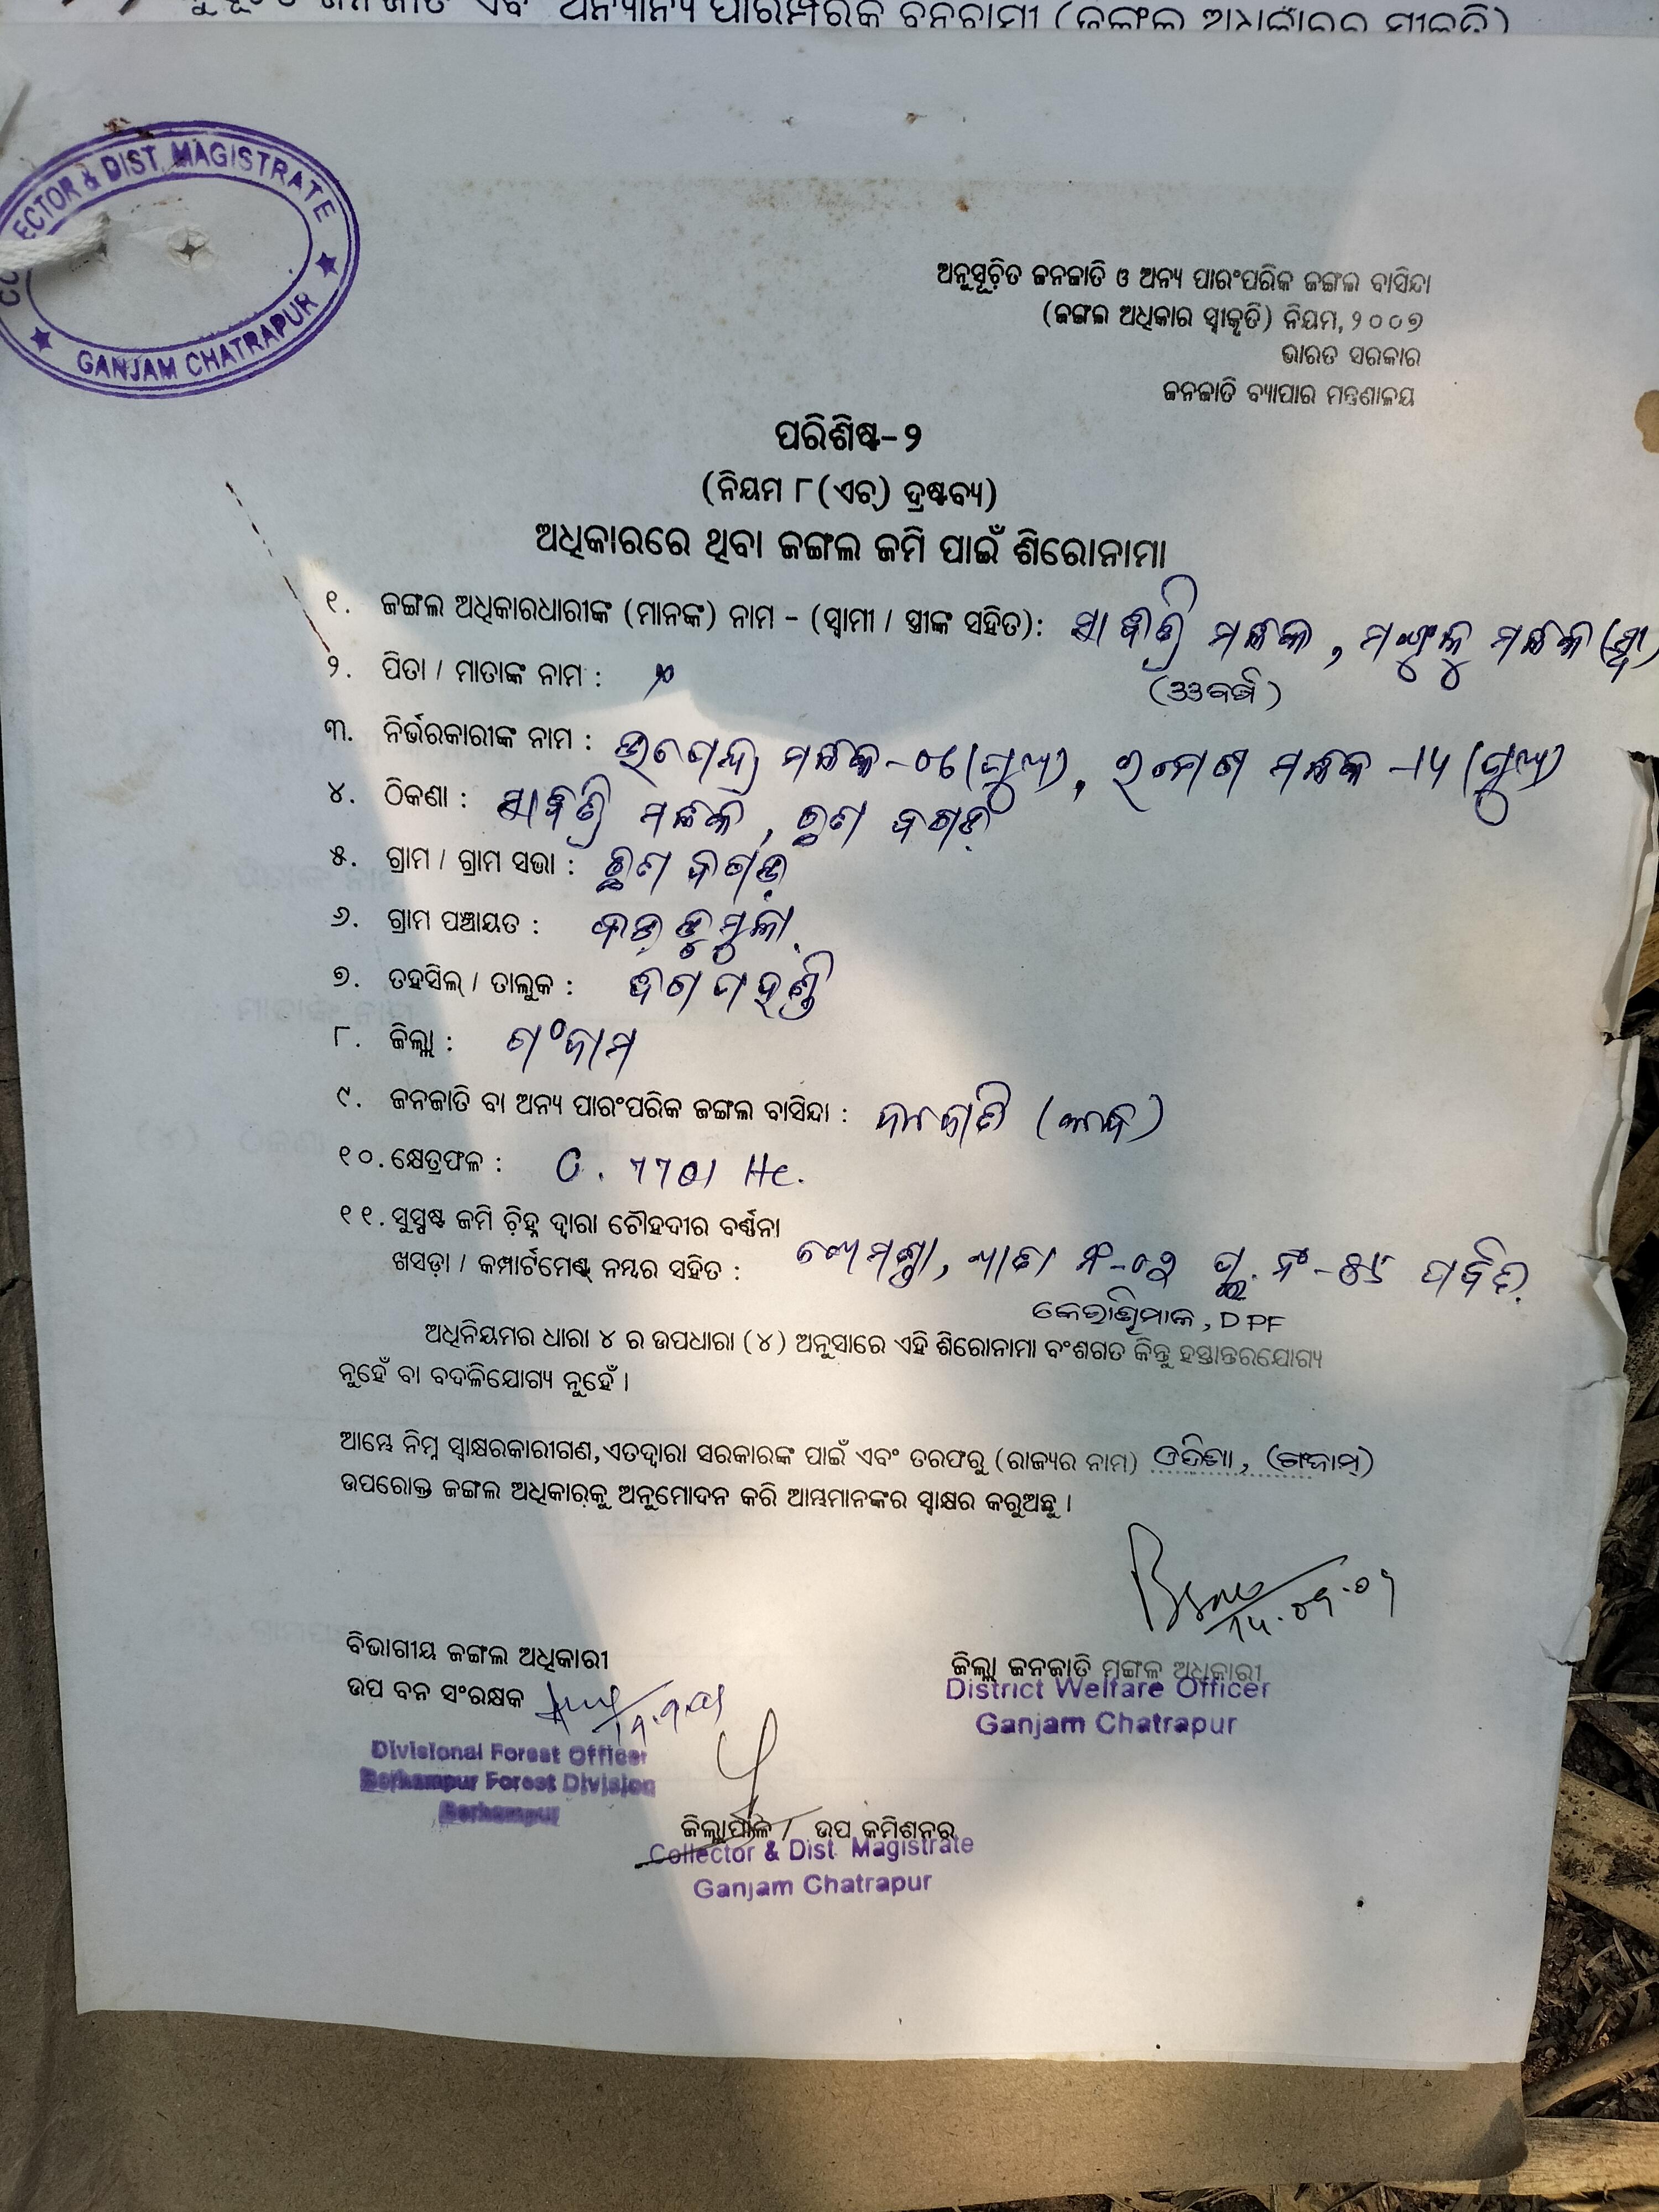 COLLECTOR & DIST. MAGISTRATE
GANJAM CHATRAPUR
ଅନୁସୂଚିତ ଜନଜାତି ଓ ଅନ୍ୟ ପାରଂପରିକ ଜଙ୍ଗଲ ବାସିନ୍ଦା
(ଜଙ୍ଗଲ ଅଧିକାର ସ୍ୱୀକୃତି) ନିୟମ, ୨୦୦୭
ଭାରତ ସରକାର
ଜନଜାତି ବ୍ୟାପାର ମନ୍ତ୍ରଣାଳୟ
ପରିଶିଷ୍ଟ-୨
(ନିୟମ ୮(ଏଚ୍) ଦ୍ରଷ୍ଟବ୍ୟ)
ଅଧିକାରରେ ଥିବା ଜଙ୍ଗଲ ଜମି ପାଇଁ ଶିରୋନାମା
୧. ଜଙ୍ଗଲ ଅଧିକାରଧାରୀଙ୍କ (ମାନଙ୍କ) ନାମ - (ସ୍ୱାମୀ / ସ୍ତ୍ରୀଙ୍କ ସହିତ): ସାବିତ୍ରୀ ମଲ୍ଲିକ, ମଙ୍ଗୁଳୁ ମଲ୍ଲିକ (ସ୍ୱା)
୨. ପିତା / ମାତାଙ୍କ ନାମ :
(୩୩ବର୍ଷ)
୩. ନିର୍ଭରକାରୀଙ୍କ ନାମ : ଉପେନ୍ଦ୍ର ମଲ୍ଲିକ (ପୁଅ), ରମେଶ ମଲ୍ଲିକ (ପୁଅ)
୪. ଠିକଣା : ସାବିତ୍ରୀ ମଲ୍ଲିକ,
୫. ଗ୍ରାମ / ଗ୍ରାମ ସଭା :
୬. ଗ୍ରାମ ପଞ୍ଚାୟତ :
୭. ତହସିଲ୍ / ତାଲୁକ : ଦିଗପହଣ୍ଡି
୮. ଜିଲ୍ଲା : ଗଂଜାମ
୯. ଜନଜାତି ବା ଅନ୍ୟ ପାରଂପରିକ ଜଙ୍ଗଲ ବାସିନ୍ଦା : ଜନଜାତି (କନ୍ଧ)
୧୦. କ୍ଷେତ୍ରଫଳ : 0.7701 Hc.
୧୧. ସୁସ୍ପଷ୍ଟ ଜମି ଚିହ୍ନ ଦ୍ୱାରା ଚୌହଦୀର ବର୍ଣ୍ଣନା
ଖସଡ଼ା / କମ୍ପାର୍ଟମେଣ୍ଟ୍ ନମ୍ବର ସହିତ : ଖାତା ନଂ ପ୍ଲଟ ନଂ
DPF
ଅଧିନିୟମର ଧାରା ୪ ର ଉପଧାରା (୪) ଅନୁସାରେ ଏହି ଶିରୋନାମା ବଂଶଗତ କିନ୍ତୁ ହସ୍ତାନ୍ତରଯୋଗ୍ୟ
ନୁହେଁ ବା ବଦଳିଯୋଗ୍ୟ ନୁହେଁ ।
ଆମ୍ଭେ ନିମ୍ନ ସ୍ୱାକ୍ଷରକାରୀଗଣ, ଏତଦ୍ୱାରା ସରକାରଙ୍କ ପାଇଁ ଏବଂ ତରଫରୁ (ରାଜ୍ୟର ନାମ) ଓଡିଶା, (ଗଂଜାମ)
ଉପରୋକ୍ତ ଜଙ୍ଗଲ ଅଧିକାରକୁ ଅନୁମୋଦନ କରି ଆମ୍ଭମାନଙ୍କର ସ୍ୱାକ୍ଷର କରୁଅଛୁ ।
ବିଭାଗୀୟ ଜଙ୍ଗଲ ଅଧିକାରୀ
ଉପ ବନ ସଂରକ୍ଷକ
Divisional Forest Officer
Berhampur Forest Division
Berhampur
ଜିଲ୍ଲା ଜନଜାତି ମଙ୍ଗଳ ଅଧିକାରୀ
District Welfare Officer
Ganjam Chatrapur
ଜିଲ୍ଲାପାଳ / ଉପ କମିଶନର
Collector & Dist. Magistrate
Ganjam Chatrapur